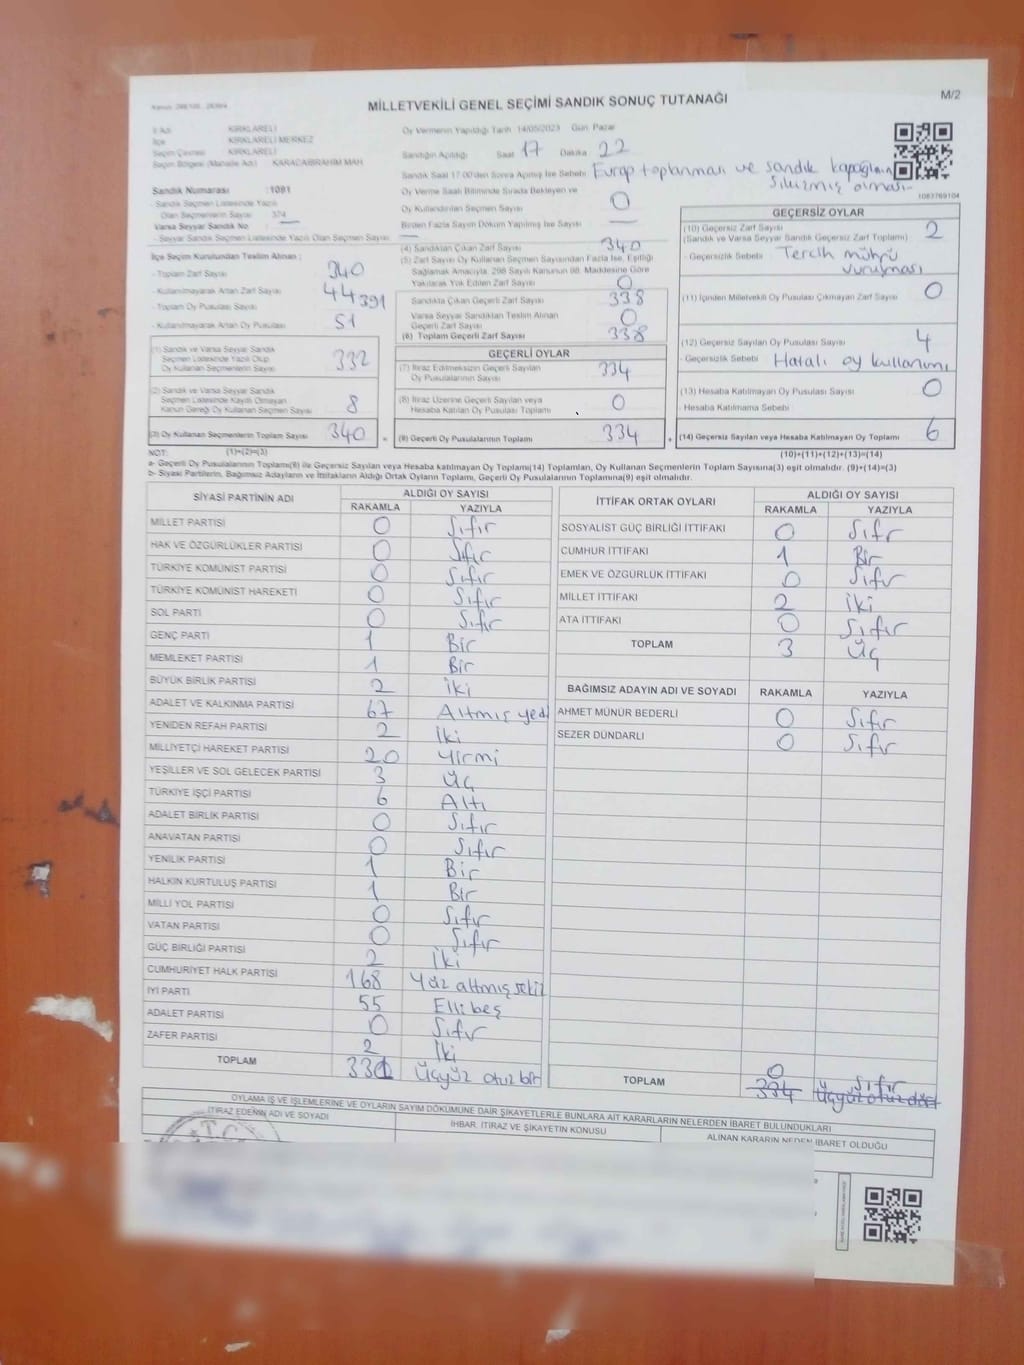 MİLLETVEKİLİ GENEL SEÇİMİ SANDIK SONUÇ TUTANAĞI
M/2
İl Adı KIRKLARELİ
İlçe KIRKLARELİ MERKEZ
Seçim Çevresi KIRKLARELİ
Seçim Bölgesi (Mahalle Adı) KARACAİBRAHİM MAH
Sandık Numarası :1091
- Sandık Seçmen Listesinde Yazılı
Olan Seçmenlerin Sayısı 374
Varsa Seyyar Sandık No
- Seyyar Sandık Seçmen Listesinde Yazılı Olan Seçmen Sayısı
İlçe Seçim Kurulundan Teslim Alınan ;
- Toplam Zarf Sayısı 340
- Kullanılmayarak Artan Zarf Sayısı 44
- Toplam Oy Pusulası Sayısı 391
- Kullanılmayarak Artan Oy Pusulası 51
(1) Sandık ve Varsa Seyyar Sandık
Seçmen Listesinde Yazılı Olup
Oy Kullanan Seçmenlerin Sayısı 332
(2) Sandık ve Varsa Seyyar Sandık
Seçmen Listesinde Kayıtlı Olmayan
Kanun Gereği Oy Kullanan Seçmen Sayısı 8
(3) Oy Kullanan Seçmenlerin Toplam Sayısı 340 =
Oy Vermenin Yapıldığı Tarih 14/05/2023 Gün Pazar
Sandığın Açıldığı Saat 17 Dakika 22
Sandık Saat 17:00'den Sonra Açılmış İse Sebebi Evrap toplanması ve sandık kapağının
sıkızmış olması
Oy Verme Saati Bitiminde Sırada Bekleyen ve
Oy Kullandırılan Seçmen Sayısı 0
Birden Fazla Sayım Döküm Yapılmış İse Sayısı
(4) Sandıktan Çıkan Zarf Sayısı 340
(5) Zarf Sayısı Oy Kullanan Seçmen Sayısından Fazla İse, Eşitliği
Sağlamak Amacıyla, 298 Sayılı Kanunun 98. Maddesine Göre
Yakılarak Yok Edilen Zarf Sayısı 0
Sandıkta Çıkan Geçerli Zarf Sayısı 338
Varsa Seyyar Sandıktan Teslim Alınan
Geçerli Zarf Sayısı 0
(6) Toplam Geçerli Zarf Sayısı 338
GEÇERLİ OYLAR
(7) İtiraz Edilmeksizin Geçerli Sayılan
Oy Pusulalarının Sayısı 334
(8) İtiraz Üzerine Geçerli Sayılan veya
Hesaba Katılan Oy Pusulası Toplamı 0
(9) Geçerli Oy Pusulalarının Toplamı 334 +
1083769104
GEÇERSİZ OYLAR
(10) Geçersiz Zarf Sayısı 2
(Sandık ve Varsa Seyyar Sandık Geçersiz Zarf Toplamı)
- Geçersizlik Sebebi Tercih mührü
vurulması
(11) İçinden Milletvekili Oy Pusulası Çıkmayan Zarf Sayısı 0
(12) Geçersiz Sayılan Oy Pusulası Sayısı 4
Geçersizlik Sebebi Hatalı oy kullanımı
(13) Hesaba Katılmayan Oy Pusulası Sayısı 0
- Hesaba Katılmama Sebebi
(14) Geçersiz Sayılan veya Hesaba Katılmayan Oy Toplamı 6
NOT: (1)+(2)=(3) (10)+(11)+(12)+(13)=(14)
a- Geçerli Oy Pusulalarının Toplamı(9) ile Geçersiz Sayılan veya Hesaba katılmayan Oy Toplamı(14) Toplamları, Oy Kullanan Seçmenlerin Toplam Sayısına(3) eşit olmalıdır. (9)+(14)=(3)
b- Siyasi Partilerin, Bağımsız Adayların ve İttifakların Aldığı Ortak Oyların Toplamı, Geçerli Oy Pusulalarının Toplamına(9) eşit olmalıdır.
SİYASİ PARTİNİN ADI ALDIĞI OY SAYISI
RAKAMLA YAZIYLA
MİLLET PARTİSİ 0 Sıfır
HAK VE ÖZGÜRLÜKLER PARTİSİ 0 Sıfır
TÜRKİYE KOMÜNİST PARTİSİ 0 Sıfır
TÜRKİYE KOMÜNİST HAREKETİ 0 Sıfır
SOL PARTİ 0 Sıfır
GENÇ PARTİ 1 Bir
MEMLEKET PARTİSİ 1 Bir
BÜYÜK BİRLİK PARTİSİ 2 İki
ADALET VE KALKINMA PARTİSİ 67 Altmış yedi
YENİDEN REFAH PARTİSİ 2 İki
MİLLİYETÇİ HAREKET PARTİSİ 20 Yirmi
YEŞİLLER VE SOL GELECEK PARTİSİ 3 Üç
TÜRKİYE İŞÇİ PARTİSİ 6 Altı
ADALET BİRLİK PARTİSİ 0 Sıfır
ANAVATAN PARTİSİ 0 Sıfır
YENİLİK PARTİSİ 1 Bir
HALKIN KURTULUŞ PARTİSİ 1 Bir
MİLLİ YOL PARTİSİ 0 Sıfır
VATAN PARTİSİ 0 Sıfır
GÜÇ BİRLİĞİ PARTİSİ 2 İki
CUMHURİYET HALK PARTİSİ 168 Yüz altmış sekiz
İYİ PARTİ 55 Elli beş
ADALET PARTİSİ 0 Sıfır
ZAFER PARTİSİ 2 İki
TOPLAM 331 Üçyüz otuz bir
İTTİFAK ORTAK OYLARI ALDIĞI OY SAYISI
RAKAMLA YAZIYLA
SOSYALİST GÜÇ BİRLİĞİ İTTİFAKI 0 Sıfır
CUMHUR İTTİFAKI 1 Bir
EMEK VE ÖZGÜRLÜK İTTİFAKI 0 Sıfır
MİLLET İTTİFAKI 2 İki
ATA İTTİFAKI 0 Sıfır
TOPLAM 3 Üç
BAĞIMSIZ ADAYIN ADI VE SOYADI RAKAMLA YAZIYLA
AHMET MÜNÜR BEDERLİ 0 Sıfır
SEZER DÜNDARLI 0 Sıfır
0 Sıfır
TOPLAM 334 Üçyüz otuz dört
OYLAMA İŞ VE İŞLEMLERİNE VE OYLARIN SAYIM DÖKÜMÜNE DAİR ŞİKAYETLERLE BUNLARA AİT KARARLARIN NELERDEN İBARET BULUNDUKLARI
İTİRAZ EDENİN ADI VE SOYADI İHBAR, İTİRAZ VE ŞİKAYETİN KONUSU ALINAN KARARIN NEDEN İBARET OLDUĞU
T.C.